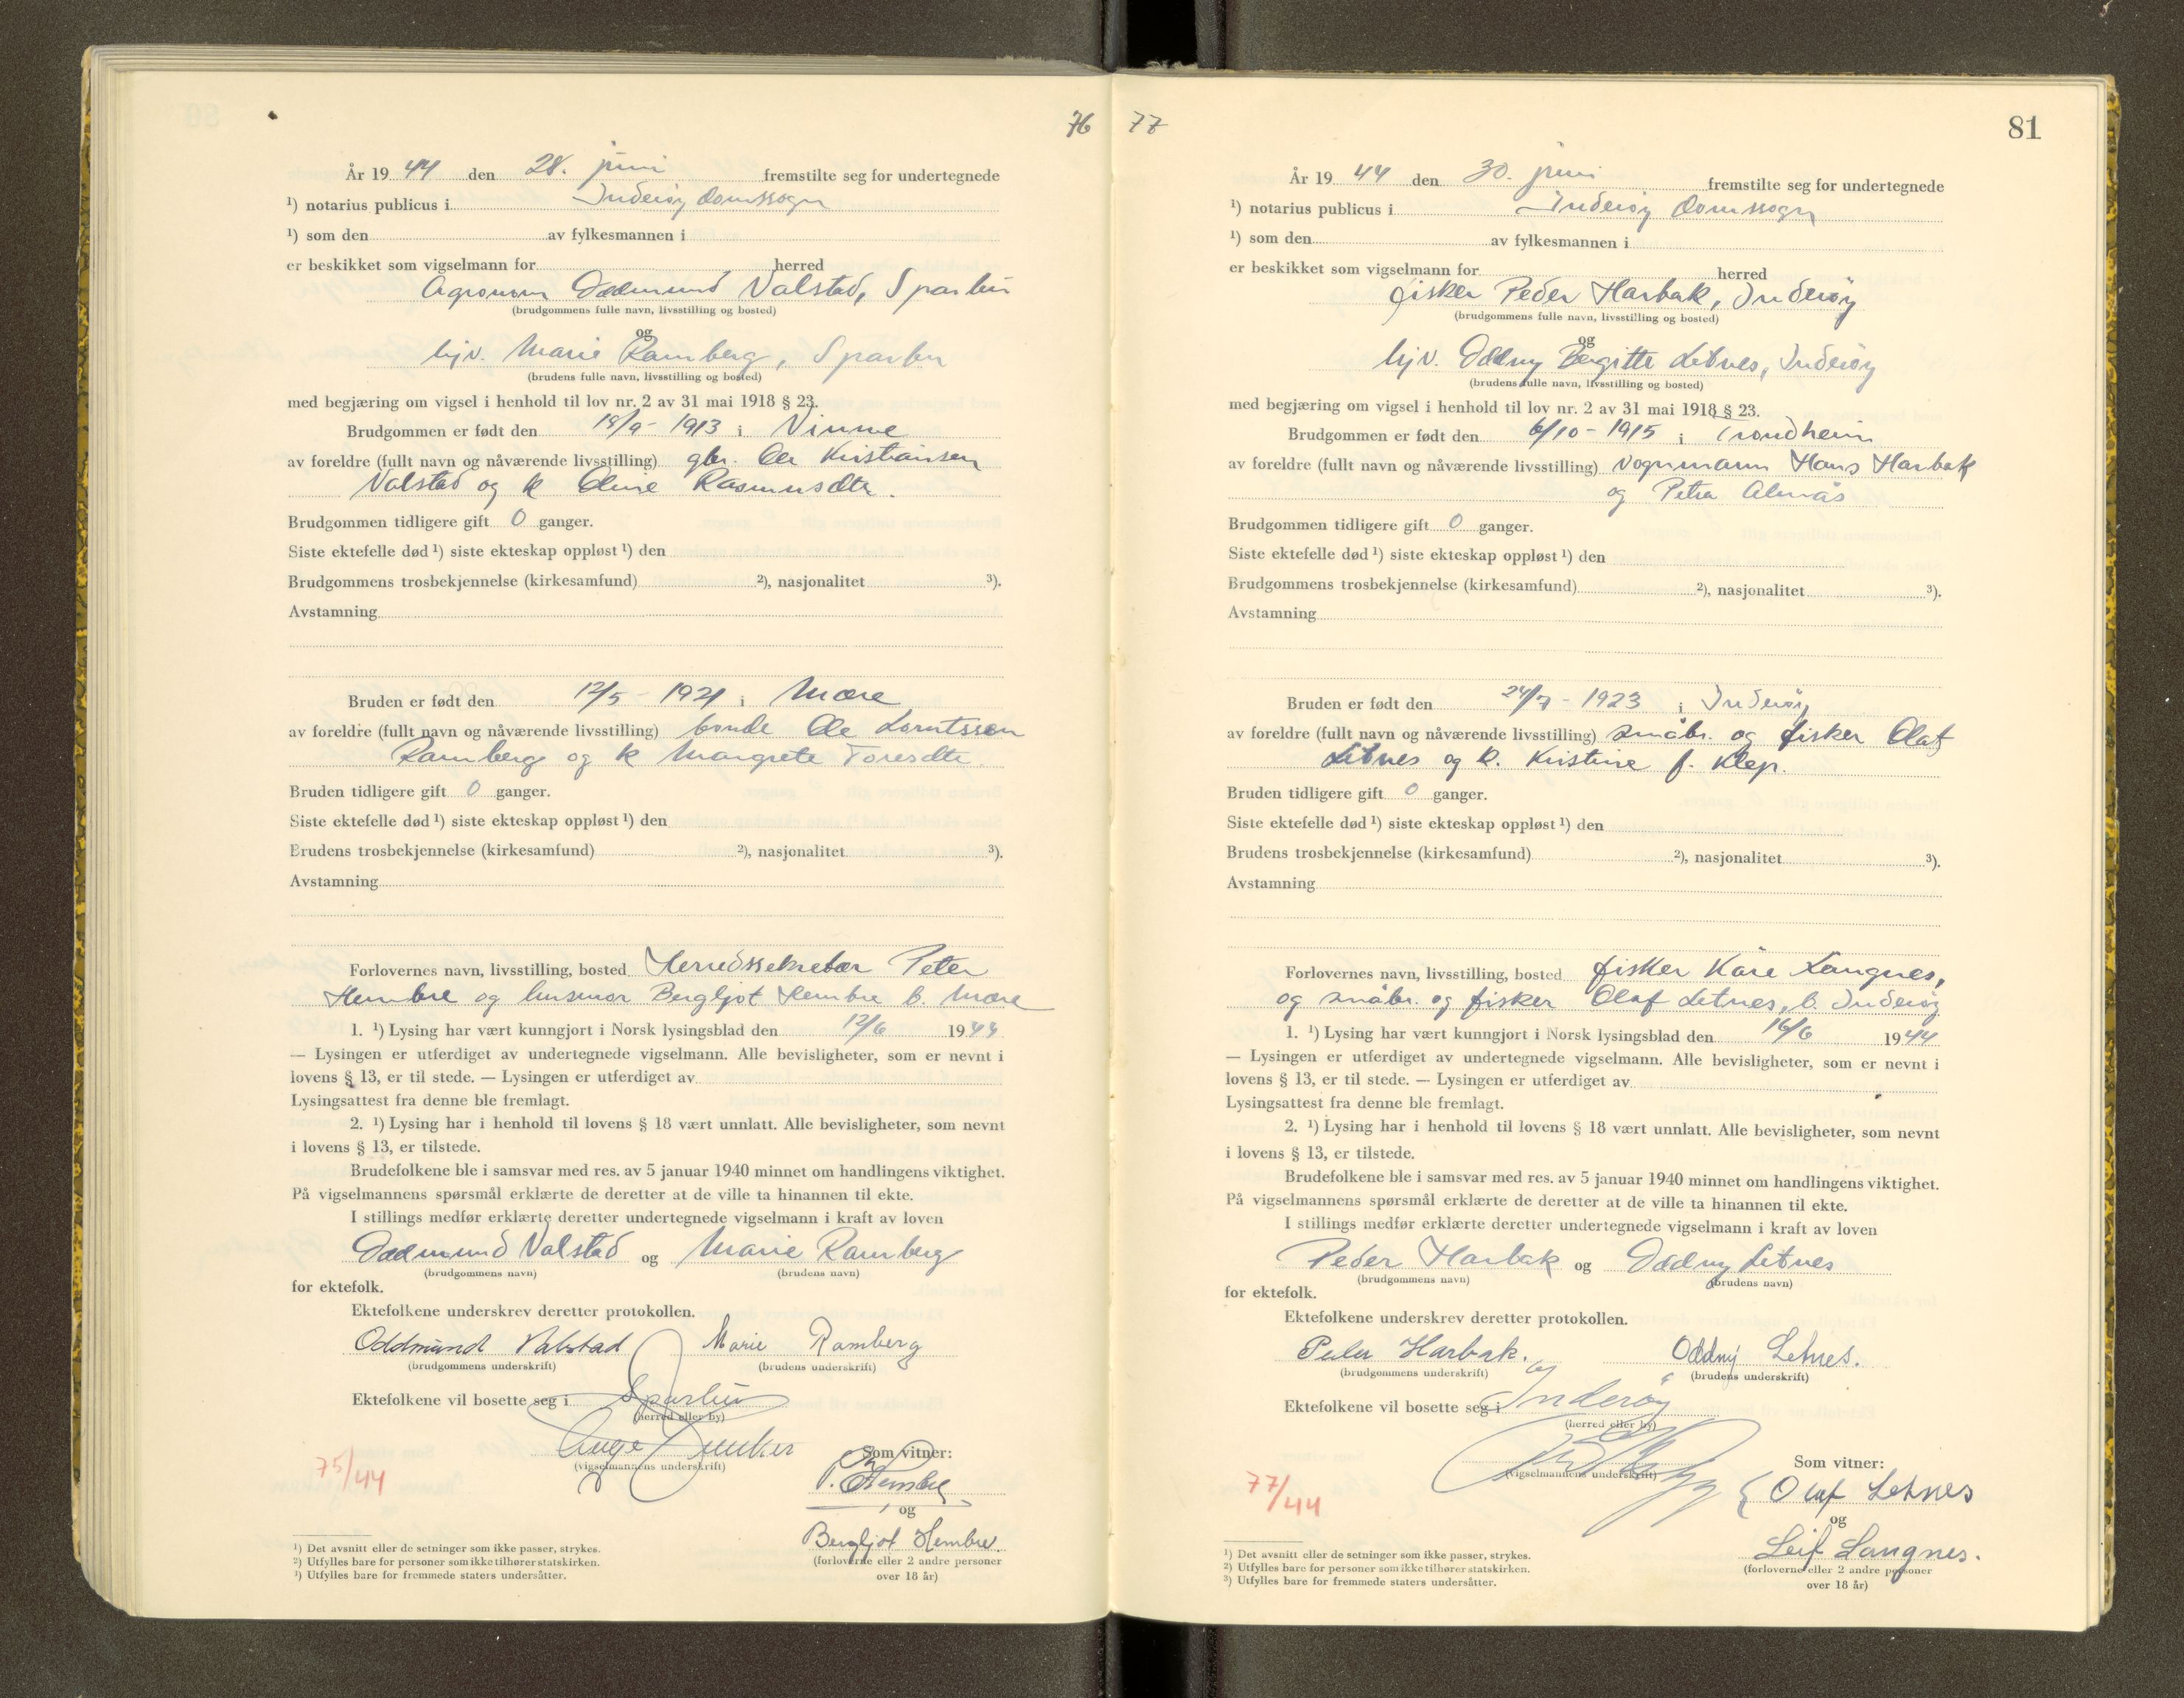 76
År 19 44 den 28. juni fremstilte seg for undertegnede
¹) notarius publicus i Inderøy domssogn
¹) som den av fylkesmannen i
er beskikket som vigselmann for herred
Agronom Oddmund Valstad, Sparbu
(brudgommens fulle navn, livsstilling og bosted)
og
hjv. Marie Ramberg, Sparbu
(brudens fulle navn, livsstilling og bosted)
med begjæring om vigsel i henhold til lov nr. 2 av 31 mai 1918 § 23.
Brudgommen er født den 18/9 - 1913 i Vinne
av foreldre (fullt navn og nåværende livsstilling) gbr. Ole Kristiansen
Valstad og k Rasmusdtr.
Brudgommen tidligere gift 0 ganger.
Siste ektefelle død ¹) siste ekteskap oppløst ¹) den
Brudgommens trosbekjennelse (kirkesamfund) ²), nasjonalitet ³).
Avstamning
Bruden er født den 12/5 - 1921 i Mære
av foreldre (fullt navn og nåværende livsstilling) bonde Ole Lorntssen
Ramberg og k Margrete Toresdtr.
Bruden tidligere gift 0 ganger.
Siste ektefelle død ¹) siste ekteskap oppløst ¹) den
Brudens trosbekjennelse (kirkesamfund) ²), nasjonalitet ³).
Avstamning
Forlovernes navn, livsstilling, bosted Herredssekretær Peter
Hembre og husmor Bergljot Hembre b. Mære
1. ¹) Lysing har vært kunngjort i Norsk lysingsblad den 12/6 1944
— Lysingen er utferdiget av undertegnede vigselmann. Alle bevisligheter, som er nevnt i
lovens § 13, er til stede. — Lysingen er utferdiget av
Lysingsattest fra denne ble fremlagt.
2. ¹) Lysing har i henhold til lovens § 18 vært unnlatt. Alle bevisligheter, som nevnt
i lovens § 13, er tilstede.
Brudefolkene ble i samsvar med res. av 5 januar 1940 minnet om handlingens viktighet.
På vigselmannens spørsmål erklærte de deretter at de ville ta hinannen til ekte.
I stillings medfør erklærte deretter undertegnede vigselmann i kraft av loven
Oddmund Valstad og Marie Ramberg
(brudgommens navn) (brudens navn)
for ektefolk.
Ektefolkene underskrev deretter protokollen.
Oddmund Valstad Marie Ramberg
(brudgommens underskrift) (brudens underskrift)
Ektefolkene vil bosette seg i Sparbu
(herred eller by)
Som vitner:
(vigselmannens underskrift)
75/44
P. Hembre
og
Bergljot Hembre.
(forloverne eller 2 andre personer
over 18 år)
¹) Det avsnitt eller de setninger som ikke passer, strykes.
²) Utfylles bare for personer som ikke tilhører statskirken.
³) Utfylles bare for fremmede staters undersåtter.
77
81
År 19 44 den 30. juni fremstilte seg for undertegnede
¹) notarius publicus i Inderøy domssogn
¹) som den av fylkesmannen i
er beskikket som vigselmann for herred
fisker Peder Harbak, Inderøy
(brudgommens fulle navn, livsstilling og bosted)
og
hjv. Oddny Bergitte Letnes, Inderøy
(brudens fulle navn, livsstilling og bosted)
med begjæring om vigsel i henhold til lov nr. 2 av 31 mai 1918 § 23.
Brudgommen er født den 6/10 - 1915 i Trondheim
av foreldre (fullt navn og nåværende livsstilling) Vognmann Hans Harbak
og Petra Almås
Brudgommen tidligere gift 0 ganger.
Siste ektefelle død ¹) siste ekteskap oppløst ¹) den
Brudgommens trosbekjennelse (kirkesamfund) ²), nasjonalitet ³).
Avstamning
Bruden er født den 24/7 - 1923 i Inderøy
av foreldre (fullt navn og nåværende livsstilling) småbr. og fisker Olaf
Letnes og k. Kristine f. Klep.
Bruden tidligere gift 0 ganger.
Siste ektefelle død ¹) siste ekteskap oppløst ¹) den
Brudens trosbekjennelse (kirkesamfund) ²), nasjonalitet ³).
Avstamning
Forlovernes navn, livsstilling, bosted fisker Kåre Langnes,
og småbr. og fisker Olaf Letnes, b. Inderøy
1. ¹) Lysing har vært kunngjort i Norsk lysingsblad den 16/6 1944
— Lysingen er utferdiget av undertegnede vigselmann. Alle bevisligheter, som er nevnt i
lovens § 13, er til stede. — Lysingen er utferdiget av
Lysingsattest fra denne ble fremlagt.
2. ¹) Lysing har i henhold til lovens § 18 vært unnlatt. Alle bevisligheter, som nevnt
i lovens § 13, er tilstede.
Brudefolkene ble i samsvar med res. av 5 januar 1940 minnet om handlingens viktighet.
På vigselmannens spørsmål erklærte de deretter at de ville ta hinannen til ekte.
I stillings medfør erklærte deretter undertegnede vigselmann i kraft av loven
Peder Harbak og Oddny Letnes
(brudgommens navn) (brudens navn)
for ektefolk.
Ektefolkene underskrev deretter protokollen.
Peder Harbak. og Oddny Letnes.
(brudgommens underskrift) (brudens underskrift)
Ektefolkene vil bosette seg i Inderøy
(herred eller by)
Som vitner:
(vigselmannens underskrift)
77/44
Olaf Letnes
og
Leif Langnes.
(forloverne eller 2 andre personer
over 18 år)
¹) Det avsnitt eller de setninger som ikke passer, strykes.
²) Utfylles bare for personer som ikke tilhører statskirken.
³) Utfylles bare for fremmede staters undersåtter.